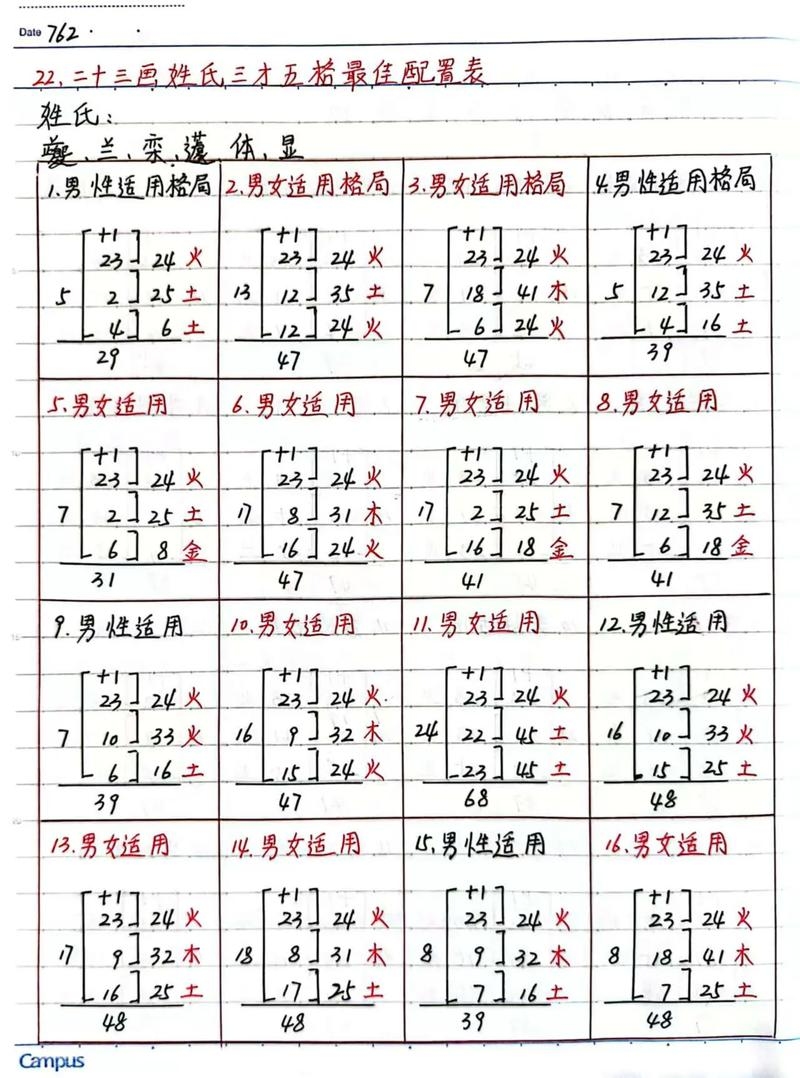 Date 762
22.二十三画姓氏三才五格最佳配置表
姓氏:
夔、兰、栾、蘧、体、显
1.男性适用格局
+1
23 24 火
5 2 25 土
4 6 土
29
2.男女适用格局
+1
23 24 火
13 12 35 土
12 24 火
47
3.男女适用格局
+1
23 24 火
7 18 41 木
6 24 火
47
4.男性适用格局
+1
23 24 火
5 12 35 土
4 16 土
39
5.男女适用
+1
23 24 火
7 2 25 土
6 8 金
31
6.男女适用
+1
23 24 火
17 8 31 木
16 24 火
47
7.男女适用
+1
23 24 火
17 2 25 土
16 18 金
41
8.男女适用
+1
23 24 火
7 12 35 土
6 18 金
41
9.男性适用
+1
23 24 火
7 10 33 火
6 16 土
39
10.男女适用
+1
23 24 火
16 9 32 木
15 24 火
47
11.男女适用
+1
23 24 火
24 22 45 土
23 45 土
68
12.男性适用
+1
23 24 火
16 10 33 火
15 25 土
48
13.男女适用
+1
23 24 火
17 9 32 木
16 25 土
48
14.男女适用
+1
23 24 火
18 8 31 木
17 25 土
48
15.男性适用
+1
23 24 火
8 9 32 木
7 16 土
39
16.男女适用
+1
23 24 火
8 18 41 木
7 25 土
48
Campus